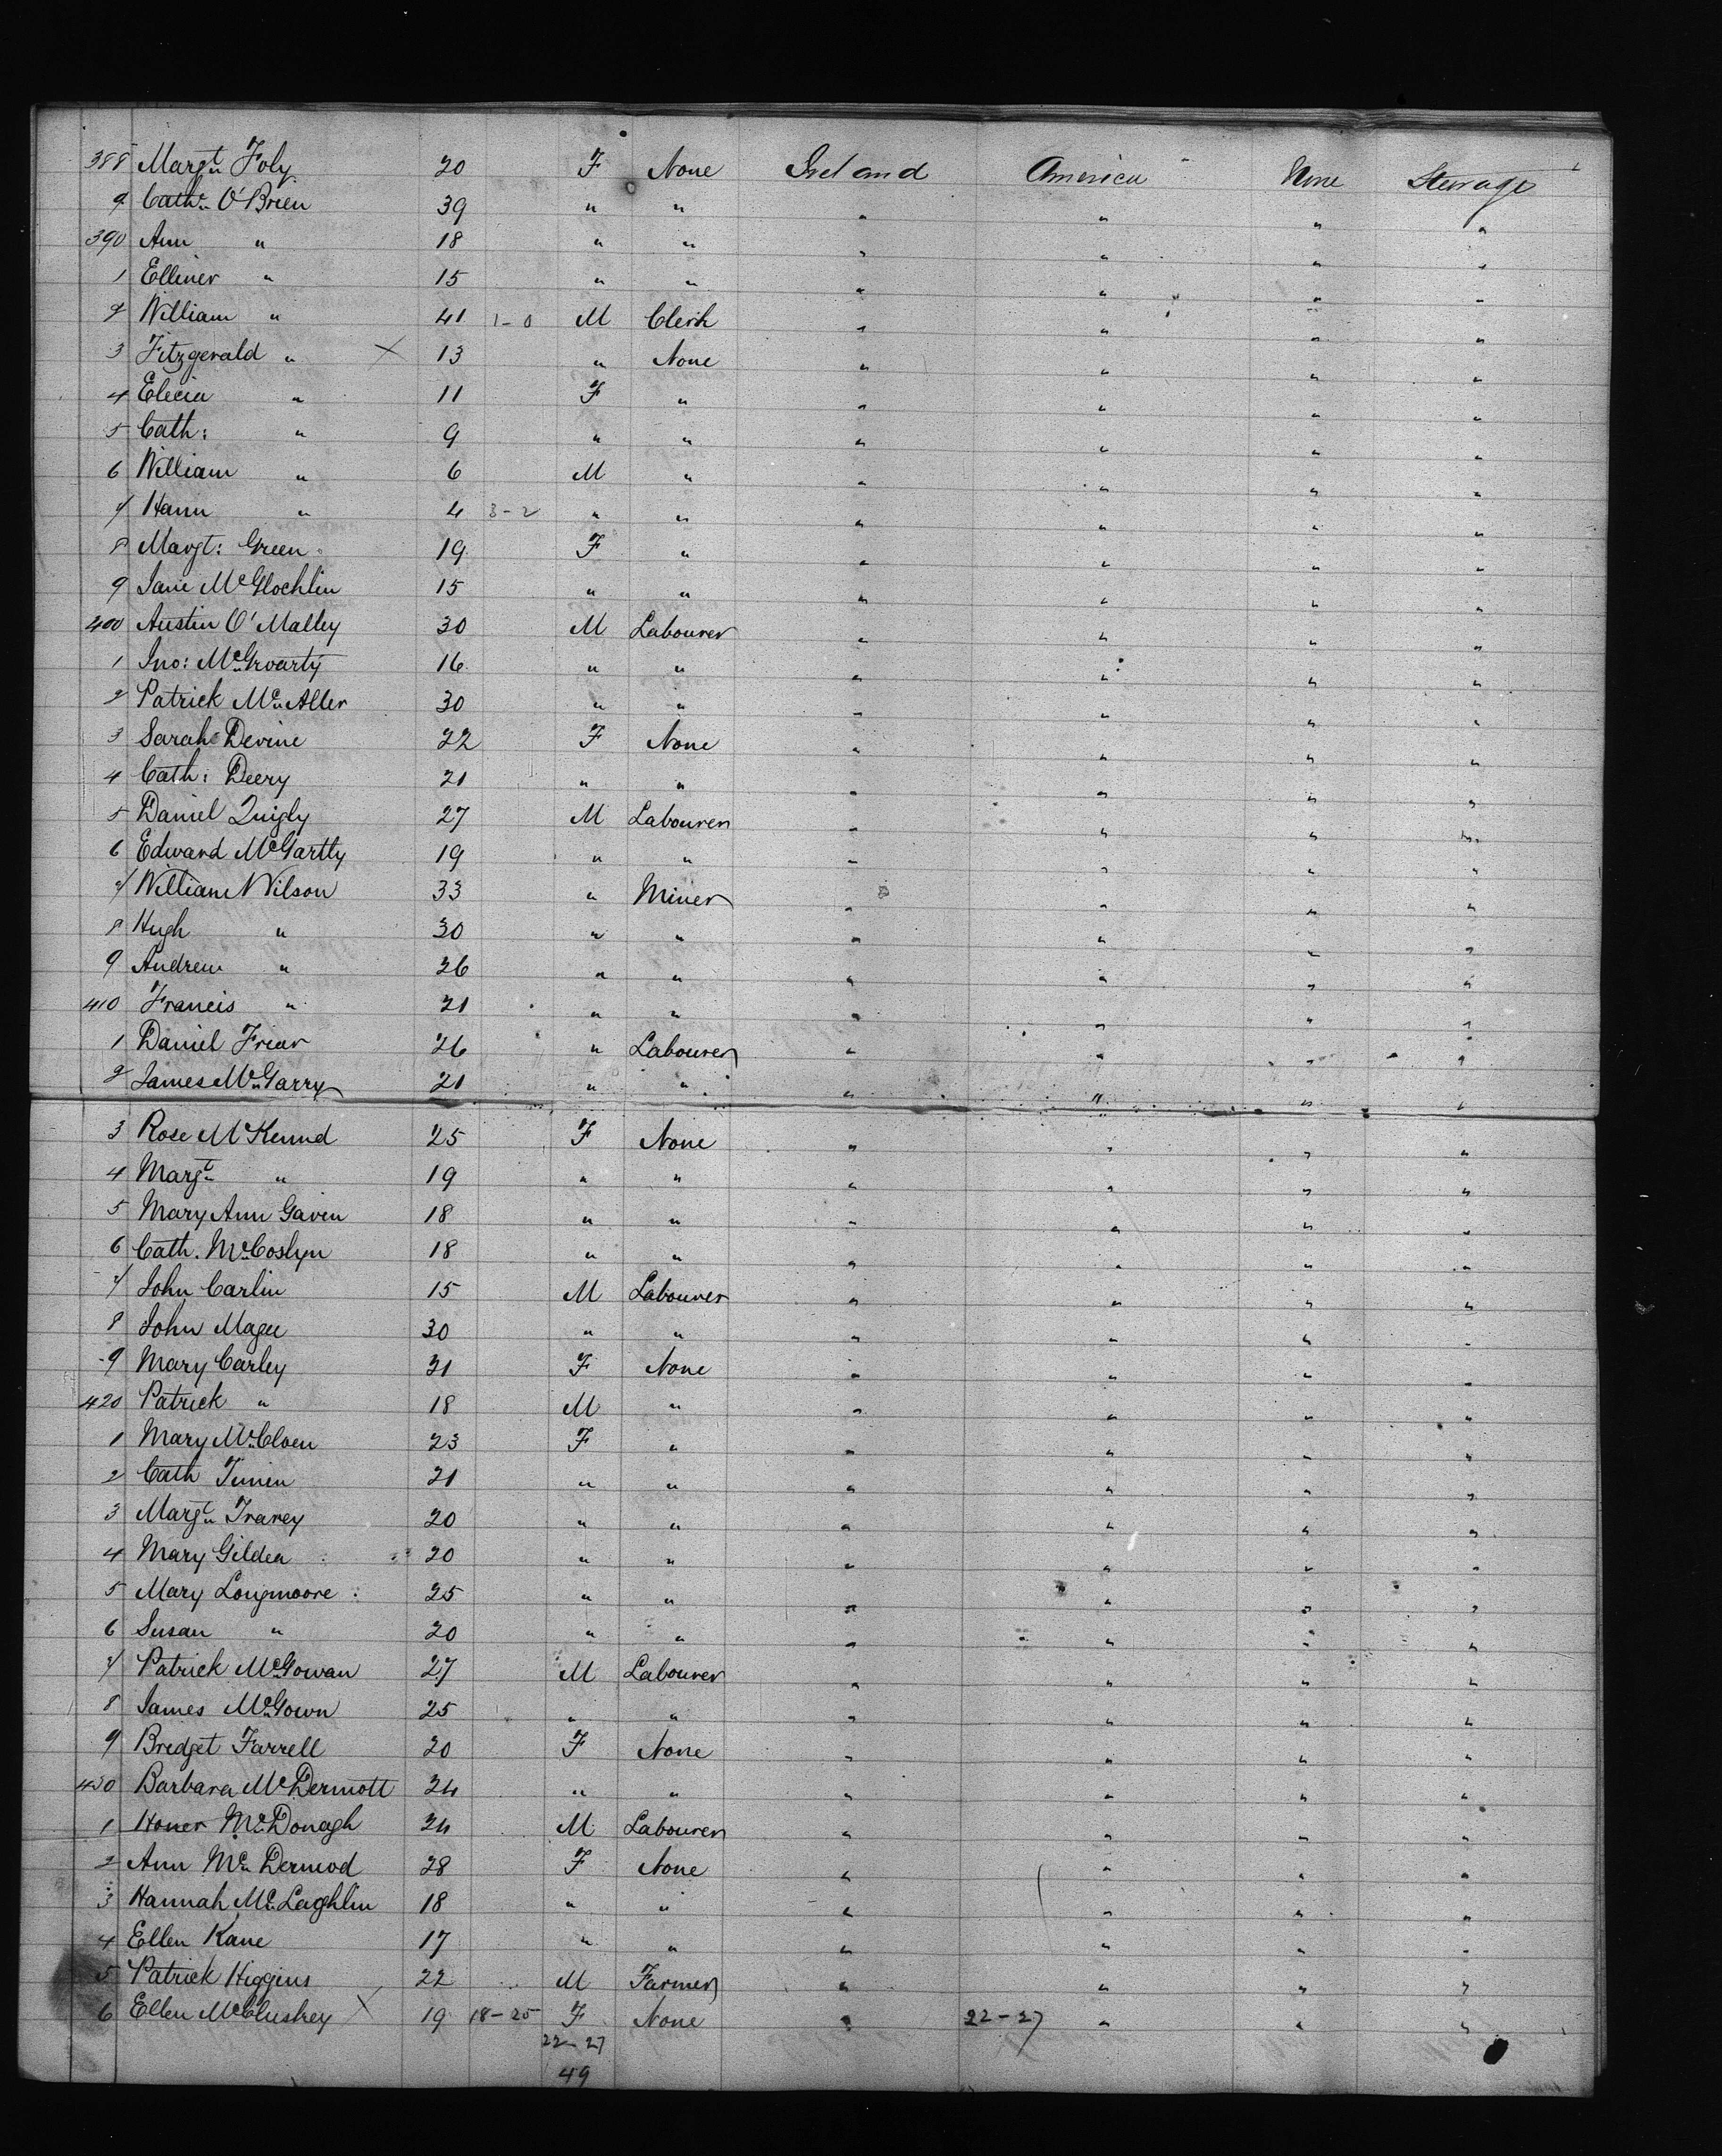 388 Margt Foly 20 F None Ireland America None Steerage
9 Cath: O'Brien 39 " " " " " "
390 Ann " 18 " " " " " "
1 Elliner " 15 " " " " " "
2 William " 41 1-0 M Clerk " " " "
3 Fitzgerald " X 13 " None " " " "
4 Elecia " 11 F " " " " "
5 Cath: " 9 " " " " " "
6 William " 6 M " " " " "
7 Hann " 4 3-2 " " " " " "
8 Margt: Green 19 F " " " " "
9 Jane McGlochlin 15 " " " " " "
400 Austin O'Malley 30 M Labourer " " " "
1 Jno: McGroarty 16 " " " " " "
2 Patrick McAller 30 " " " " " "
3 Sarah Devine 22 F None " " " "
4 Cath: Deery 21 " " " " " "
5 Daniel Quigly 27 M Labourer " " " "
6 Edward McGartty 19 " " " " " "
7 William Wilson 33 " Miner " " " "
8 Hugh " 30 " " " " " "
9 Andrew " 26 " " " " " "
410 Francis " 21 " " " " " "
1 Daniel Friar 26 " Labourer " " " "
2 James McGarry 21 " " " " " "
3 Rose McKennd 25 F None " " " "
4 Margt " 19 " " " " " "
5 Mary Ann Gavin 18 " " " " " "
6 Cath. McCoslyn 18 " " " " " "
7 John Carlin 15 M Labourer " " " "
8 John Magee 30 " " " " " "
9 Mary Carley 31 F None " " " "
420 Patrick " 18 M " " " " "
1 Mary McCloen 23 F " " " " "
2 Cath 21 " " " " " "
3 Margt Travey 20 " " " " " "
4 Mary Gildea 20 " " " " " "
5 Mary Longmoore 25 " " " " " "
6 Susan " 20 " " " " " "
7 Patrick McGowan 27 M Labourer " " " "
8 James McGown 25 " " " " " "
9 Bridget Farrell 20 F None " " " "
430 Barbara McDermott 24 " " " " " "
1 Honer McDonagh 24 M Labourer " " " "
2 Ann McDermod 28 F None " " " "
3 Hannah McLaghlin 18 " " " " " "
4 Ellen Kane 17 " " " " " "
5 Patrick Higgins 22 M Farmer " " " "
6 Ellen McCluskey X 19 18-25 F None " 22-27 " " "
22-27
49